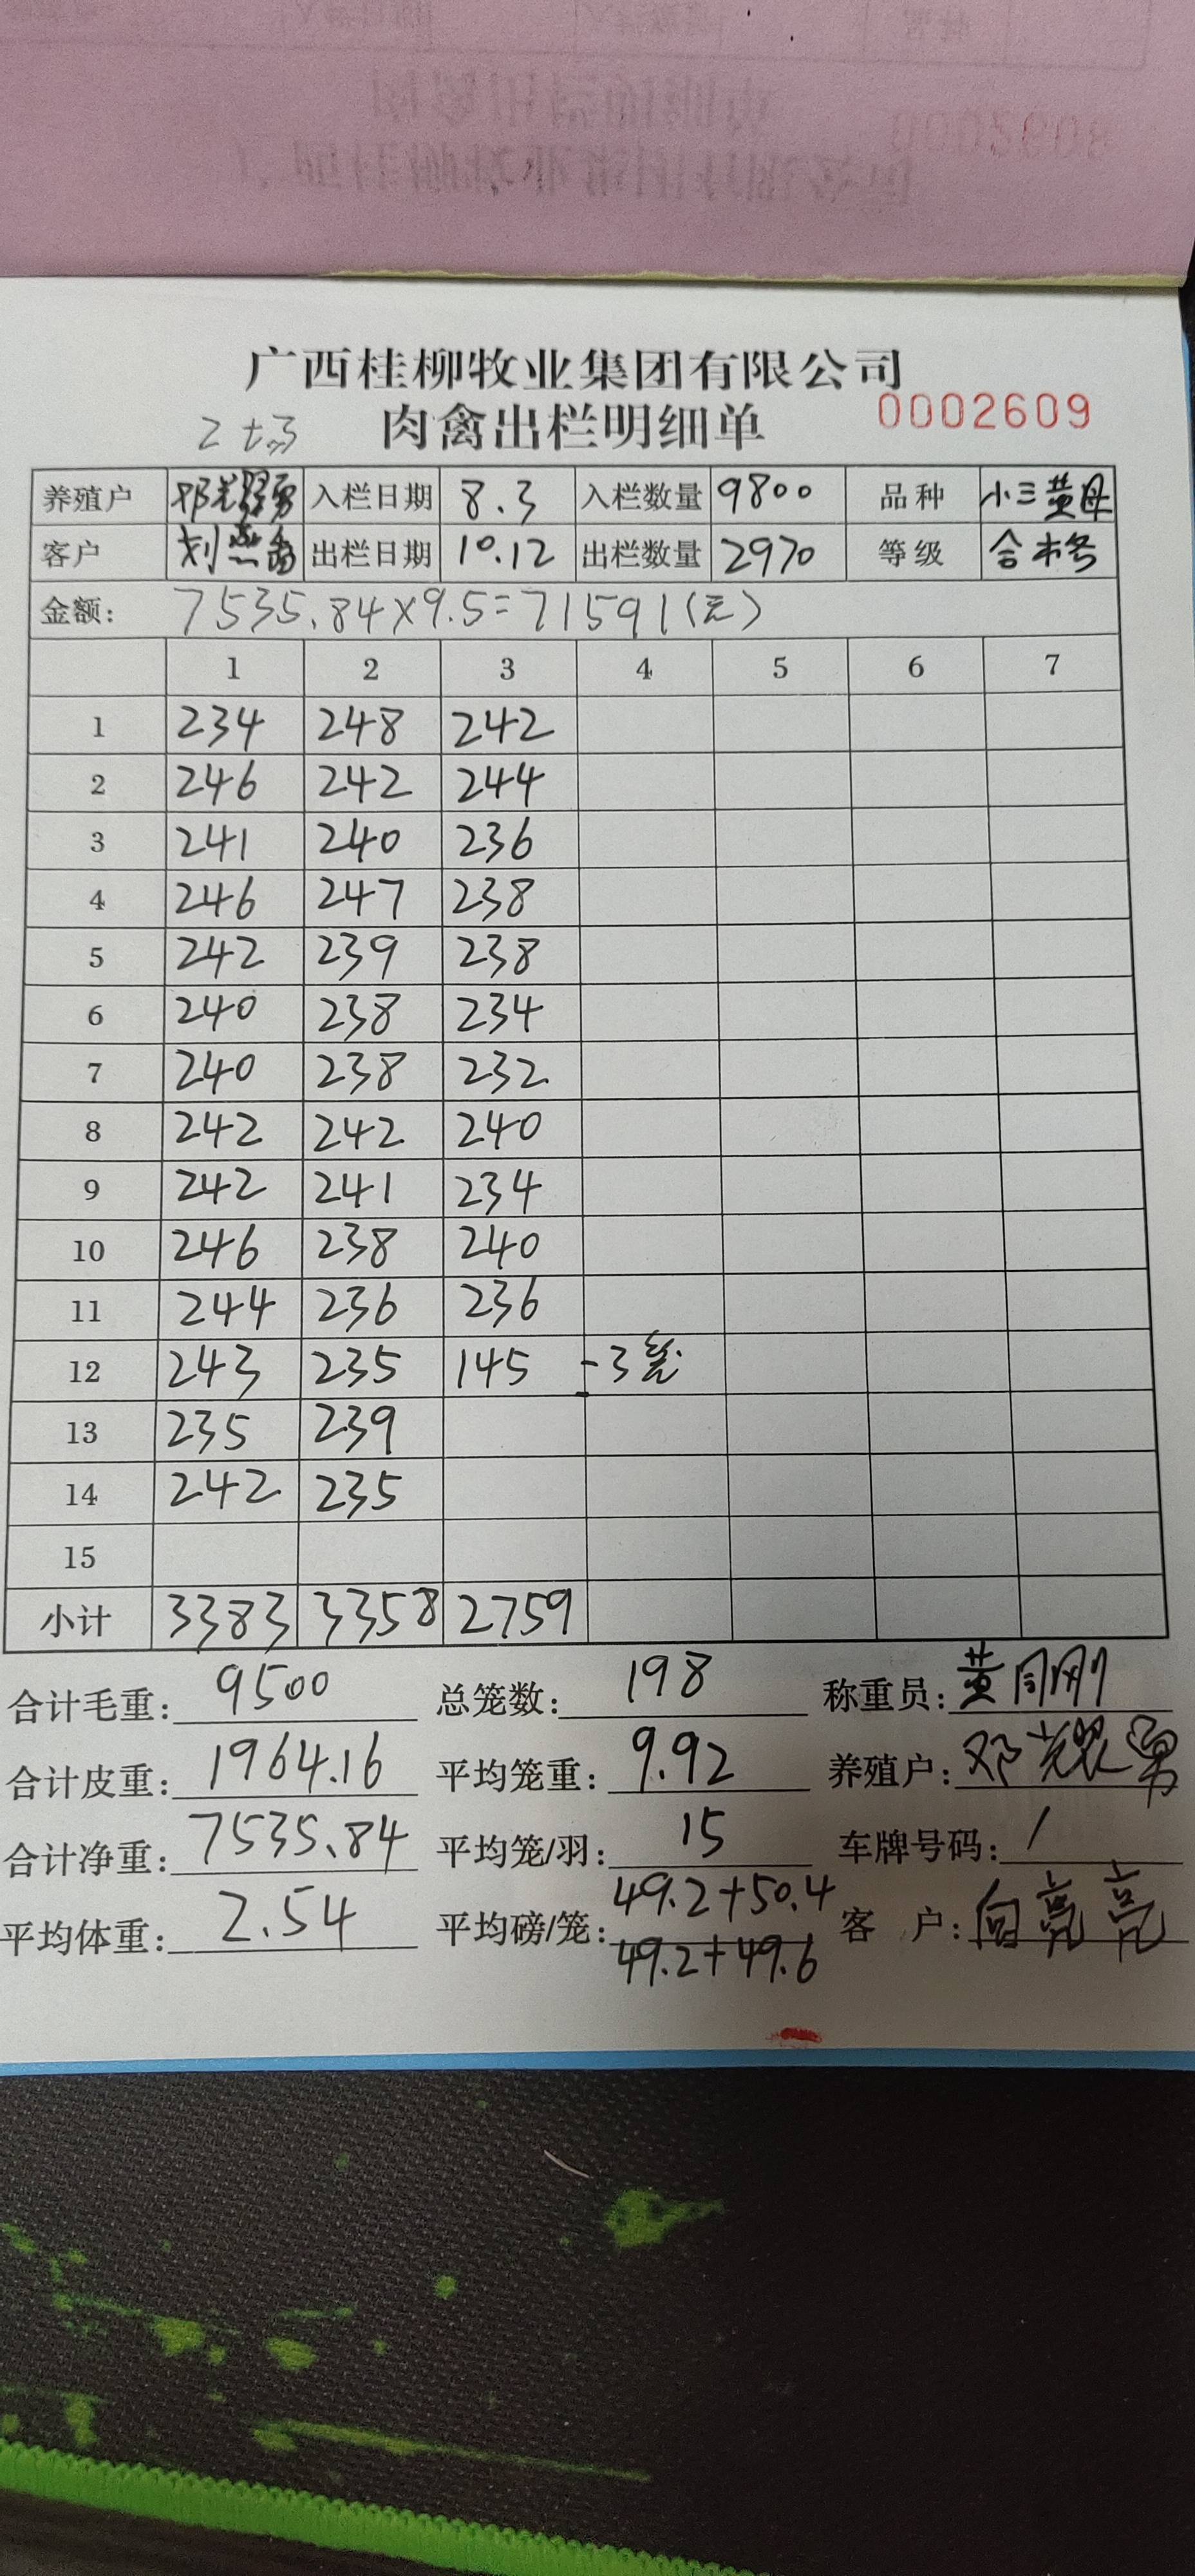 广西桂柳牧业集团有限公司
肉禽出栏明细单 0002609
养殖户 邓光辉勇 入栏日期 8.3 入栏数量 9800 品种 小三黄母
客户 出栏日期 10.12 出栏数量 2970 等级 合格
金额: 7535.84×9.5=71591(元)
1 2 3 4 5 6 7
1 234 248 242
2 246 242 244
3 241 240 236
4 246 247 238
5 242 239 238
6 240 238 234
7 240 238 232
8 242 242 240
9 242 241 234
10 246 238 240
11 244 236 236
12 243 235 145 -3笼
13 235 239
14 242 235
15
小计 3383 3358 2759
合计毛重: 9500 总笼数: 198 称重员: 黄同刚
合计皮重: 1964.16 平均笼重: 9.92 养殖户:
合计净重: 7535.84 平均笼/羽: 15 车牌号码: /
平均体重: 2.54 平均磅/笼: 49.2+50.4 客 户: 向亮亮
49.2+49.6